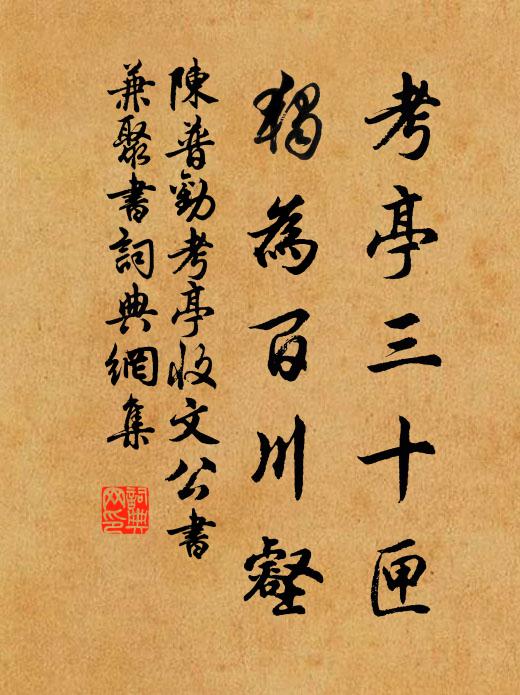 考亭三十匣
獨為百川壑
陳普勸考亭收文公書
兼聚書詞典網集
詞典
网印